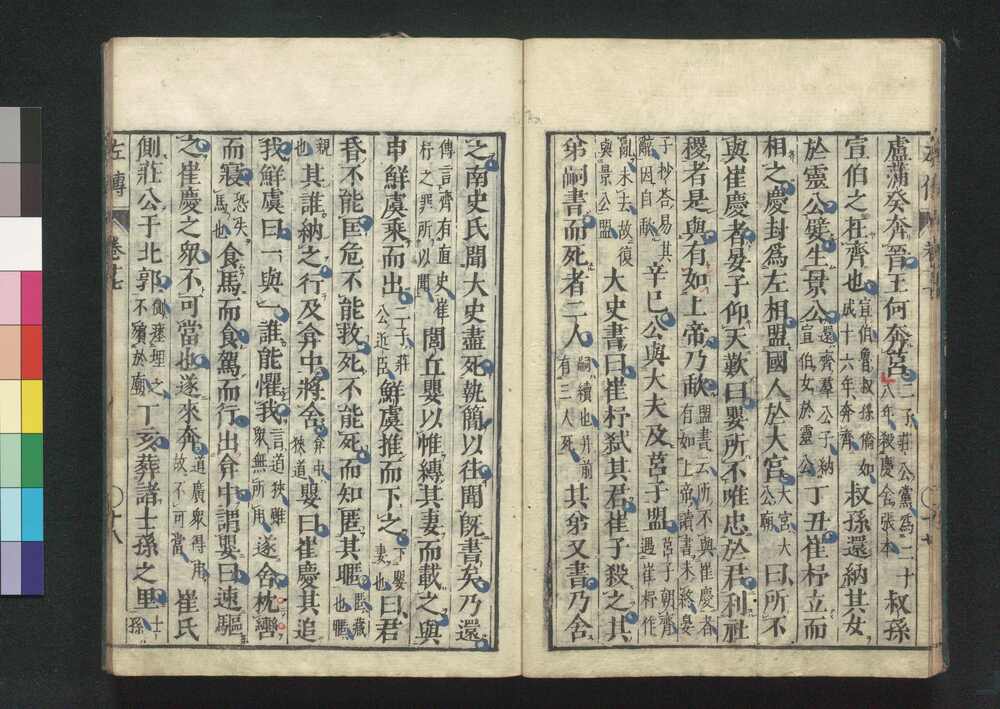 盧蒲癸奔晉王何奔莒二子莊公黨爲二十八年殺慶舍張本叔孫
宣伯之在齊也宣伯魯叔孫僑如成十六年奔齊叔孫還納其女
於靈公嬖生景公還齊羣公子納宣伯女於靈公丁丑崔杼立而
相之慶封爲左相盟國人於大宮大宮大公廟曰所不
與崔慶者晏子仰天歎曰嬰所不唯忠於君利社
稷者是與有如上帝乃歃盟書云所不與崔慶者有如上帝讀書未終晏
子抄荅易其辭因自歃辛巳公與大夫及莒子盟莒子朝齊遇崔杼作
亂未去故復與景公盟大史書曰崔杼弑其君崔子殺之其
弟嗣書而死者二人嗣續也并前有三人死其弟又書乃舍
之南史氏聞大史盡死執簡以往聞旣書矣乃還
傳言齊有直史崔杼之罪所以聞閭丘嬰以帷縛其妻而載之與
申鮮虞乘而出二子莊公近臣鮮虞推而下之下嬰妻也曰君
昏不能匡危不能救死不能死而知匿其暱匿藏也暱
親也其誰納之行及弇中將舍弇中狹道嬰曰崔慶其追
我鮮虞曰一與一誰能懼我言道狹雖衆無所用遂舍枕轡
而寢恐失馬也食馬而食駕而行出弇中謂嬰曰速驅
之崔慶之衆不可當也遂來奔道廣衆得用故不可當崔氏
側莊公于北郭側瘞埋之不殯於廟丁亥葬諸士孫之里士孫
左傳
卷十七
十八